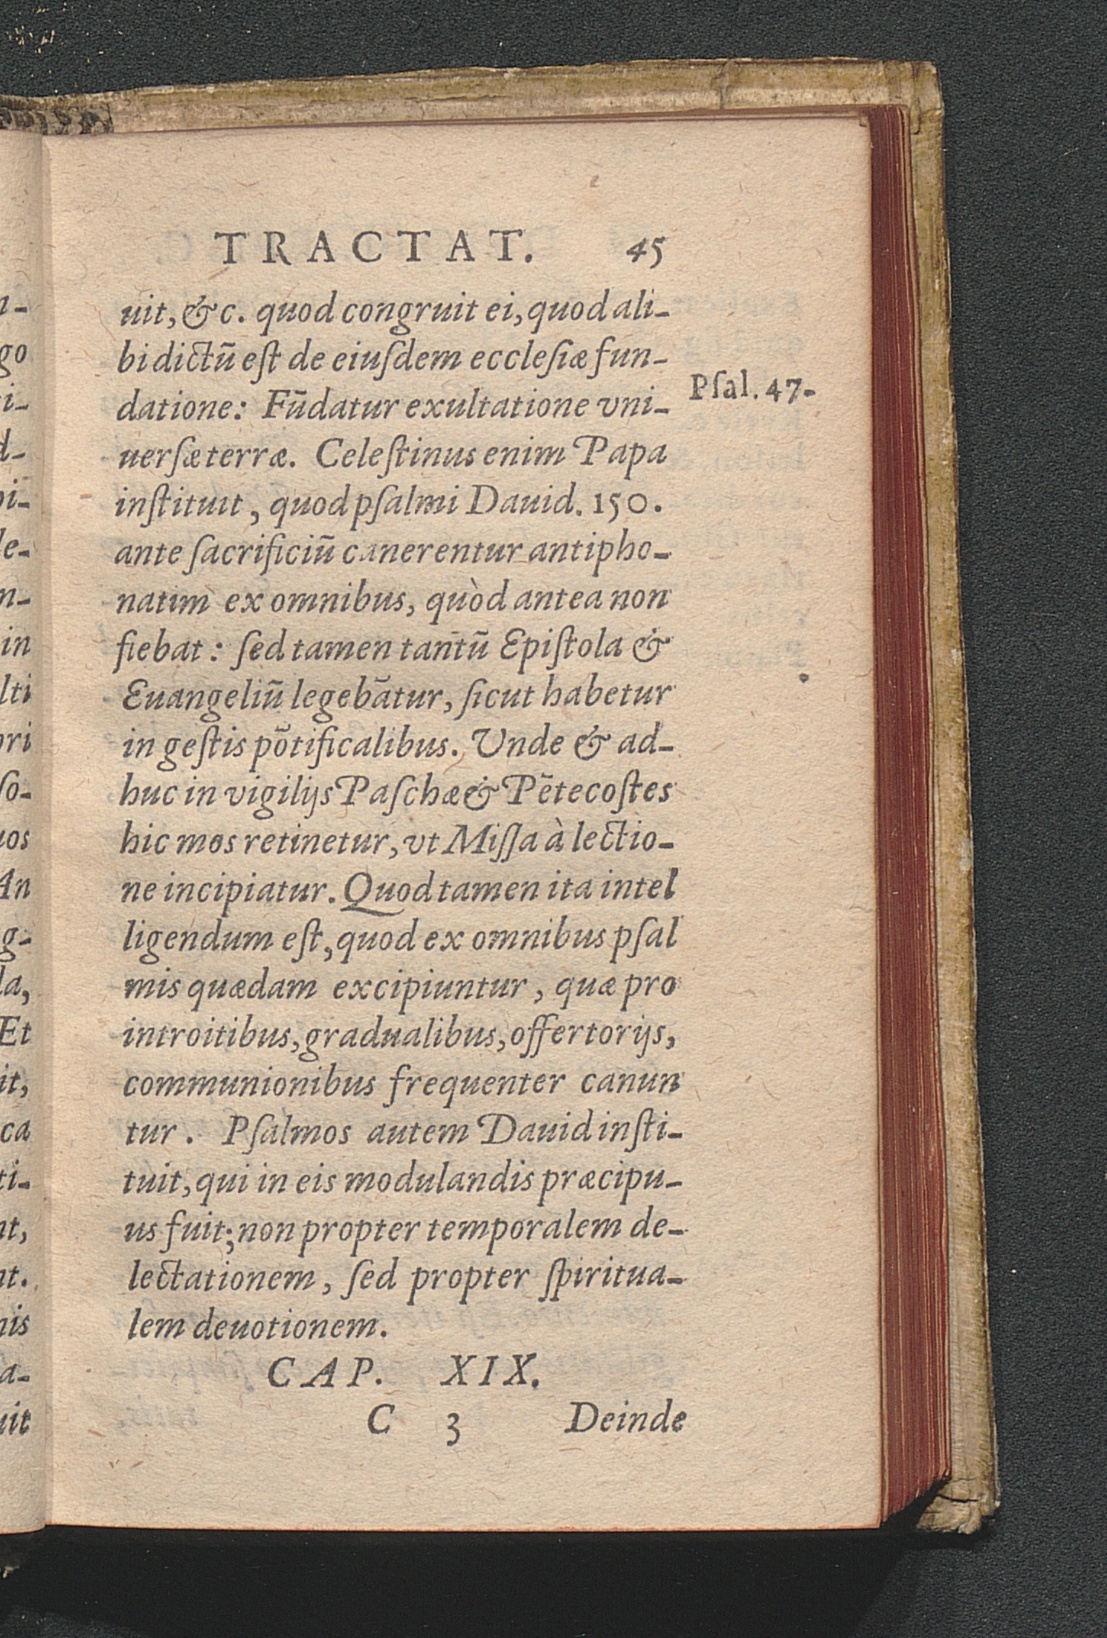 TRACTAT. 45
uit, &c. quod congruit ei, quod ali-
bi dictū est de eiusdem ecclesiæ fun-
datione: Fūdatur exultatione vni-
Psal. 47.
uersæ terræ. Celestinus enim Papa
instituit, quod psalmi Dauid. 150.
ante sacrificiū canerentur antipho-
natim ex omnibus, quòd antea non
fiebat: sed tamen tantū Epistola &
Euangeliū legebātur, sicut habetur
in gestis pōtificalibus. Unde & ad-
huc in vigilijs Paschæ & Pētecostes
hic mos retinetur, vt Missa à lectio-
ne incipiatur. Quod tamen ita intel
ligendum est, quod ex omnibus psal
mis quædam excipiuntur, quæ pro
introitibus, gradualibus, offertorijs,
communionibus frequenter canun
tur. Psalmos autem Dauid insti-
tuit, qui in eis modulandis præcipu-
us fuit; non propter temporalem de-
lectationem, sed propter spiritua-
lem deuotionem.
CAP. XIX.
C 3 Deinde